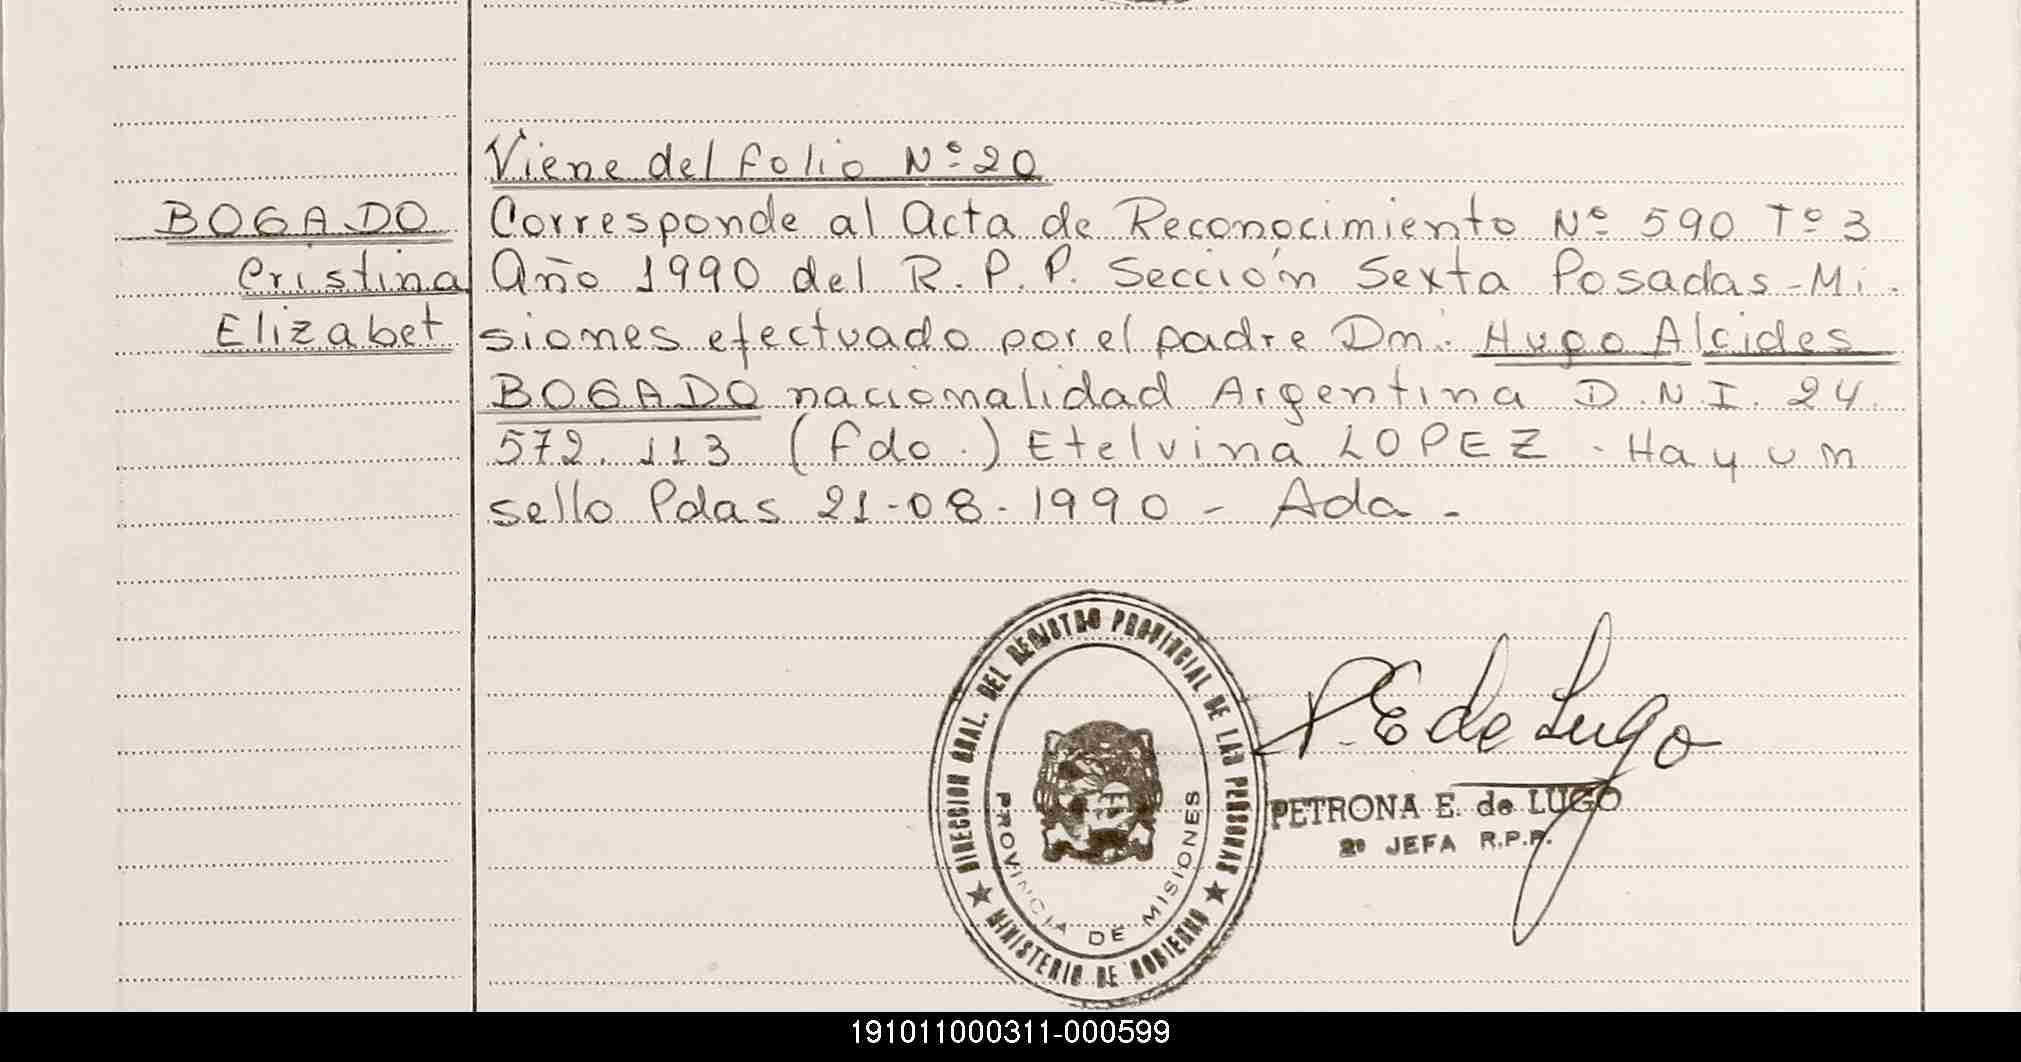 Viene del folio Nº 20
BOGADO
Cristina
Elizabet
Corresponde al Acta de Reconocimiento Nº 590 Tº 3
Año 1990 del R. P. P. Sección Sexta Posadas - Mi.
siones efectuado por el padre Dn. Hugo Alcides
BOGADO nacionalidad Argentina D.N.I. 24.
572.113 (fdo.) Etelvina LOPEZ - Hay un
sello Pdas 21-08-1990 - Ada -
DIRECCION GRAL. DEL REGISTRO PROVINCIAL DE LAS PERSONAS
PROVINCIA DE MISIONES
★ MINISTERIO DE GOBIERNO ★
P. E de Lugo
PETRONA E. de LUGO
2º JEFA R.P.P.
191011000311-000599